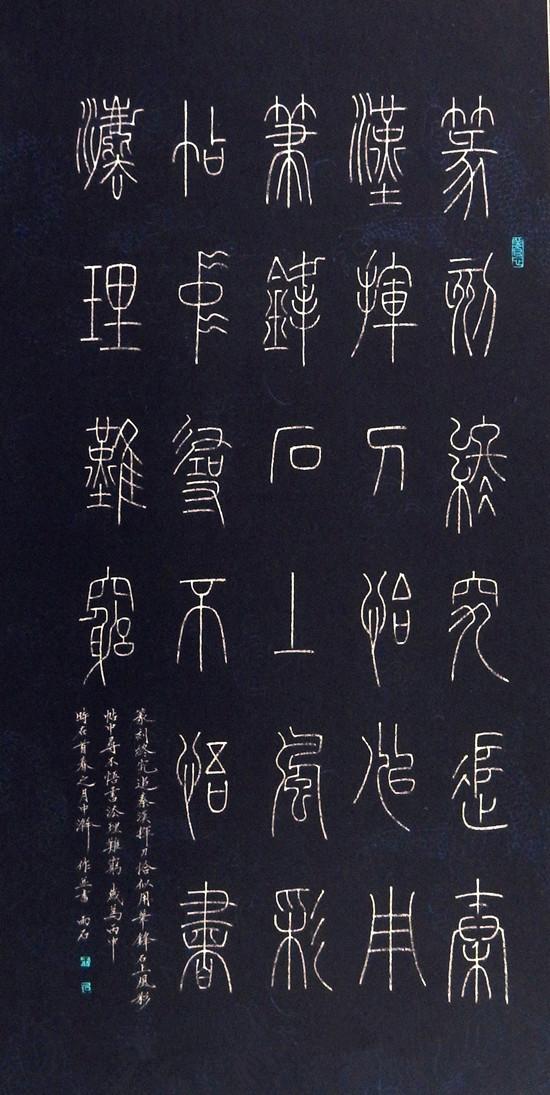 篆刻終究追秦
漢揮刀恰似用
筆鋒石上風彩
帖中尋不悟書
法理難窮
篆刻終究追秦漢揮刀恰似用筆鋒石上風彩
帖中尋不悟書法理難窮 歲為丙申
時在首春之月中澣 作並書 雨石